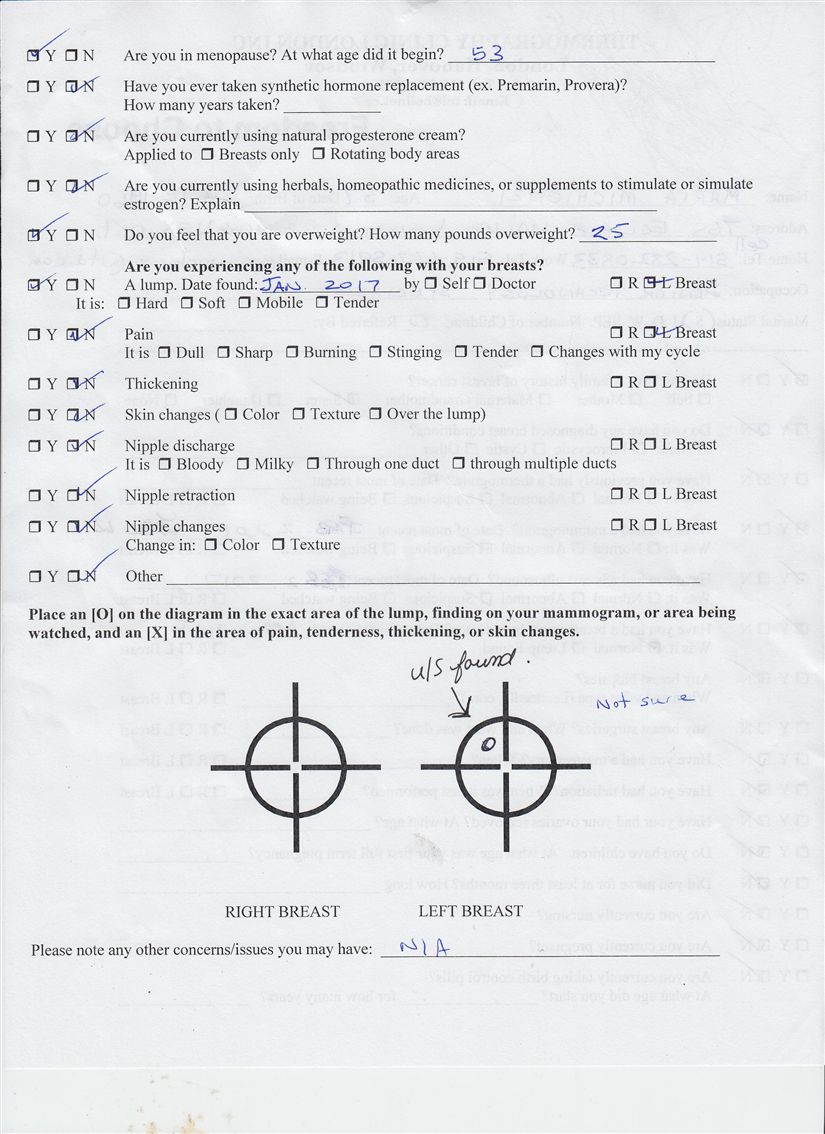 ☑ Y ☐ N Are you in menopause? At what age did it begin? 53
☐ Y ☑ N Have you ever taken synthetic hormone replacement (ex. Premarin, Provera)?
How many years taken? ____________
☐ Y ☑ N Are you currently using natural progesterone cream?
Applied to ☐ Breasts only ☐ Rotating body areas
☐ Y ☑ N Are you currently using herbals, homeopathic medicines, or supplements to stimulate or simulate
estrogen? Explain ____________
☑ Y ☐ N Do you feel that you are overweight? How many pounds overweight? 25
Are you experiencing any of the following with your breasts?
☑ Y ☐ N A lump. Date found: JAN. 2017 by ☐ Self ☐ Doctor ☐ R ☑ L Breast
It is: ☐ Hard ☐ Soft ☐ Mobile ☐ Tender
☐ Y ☑ N Pain ☐ R ☑ L Breast
It is ☐ Dull ☐ Sharp ☐ Burning ☐ Stinging ☐ Tender ☐ Changes with my cycle
☐ Y ☑ N Thickening ☐ R ☐ L Breast
☐ Y ☑ N Skin changes ( ☐ Color ☐ Texture ☐ Over the lump)
☐ Y ☑ N Nipple discharge ☐ R ☐ L Breast
It is ☐ Bloody ☐ Milky ☐ Through one duct ☐ through multiple ducts
☐ Y ☑ N Nipple retraction ☐ R ☐ L Breast
☐ Y ☑ N Nipple changes ☐ R ☐ L Breast
Change in: ☐ Color ☐ Texture
☐ Y ☑ N Other ____________
Place an [O] on the diagram in the exact area of the lump, finding on your mammogram, or area being
watched, and an [X] in the area of pain, tenderness, thickening, or skin changes.
u/s found.
Not sure
O
RIGHT BREAST LEFT BREAST
Please note any other concerns/issues you may have: N/A